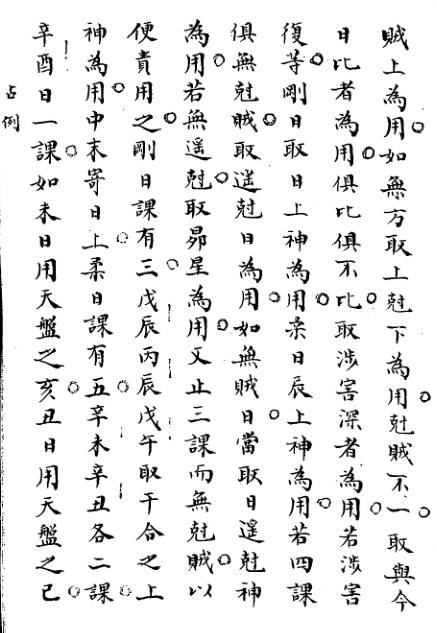 賊上為用如無方取上尅下為用尅賊不一取與今
日比者為用俱比俱不比取涉害深者為用若涉害
復等剛日取日上神為用柔日辰上神為用若四課
俱無尅賊取遥尅日為用如無賊日當取日遥尅神
為用若無遥尅取昴星為用又止三課而無尅賊以
便責用之剛日課有三戊辰丙辰戊午取干合之上
神為用中末寄日上柔日課有五辛未辛丑各二課
辛酉日一課如未日用天盤之亥丑日用天盤之巳
占例